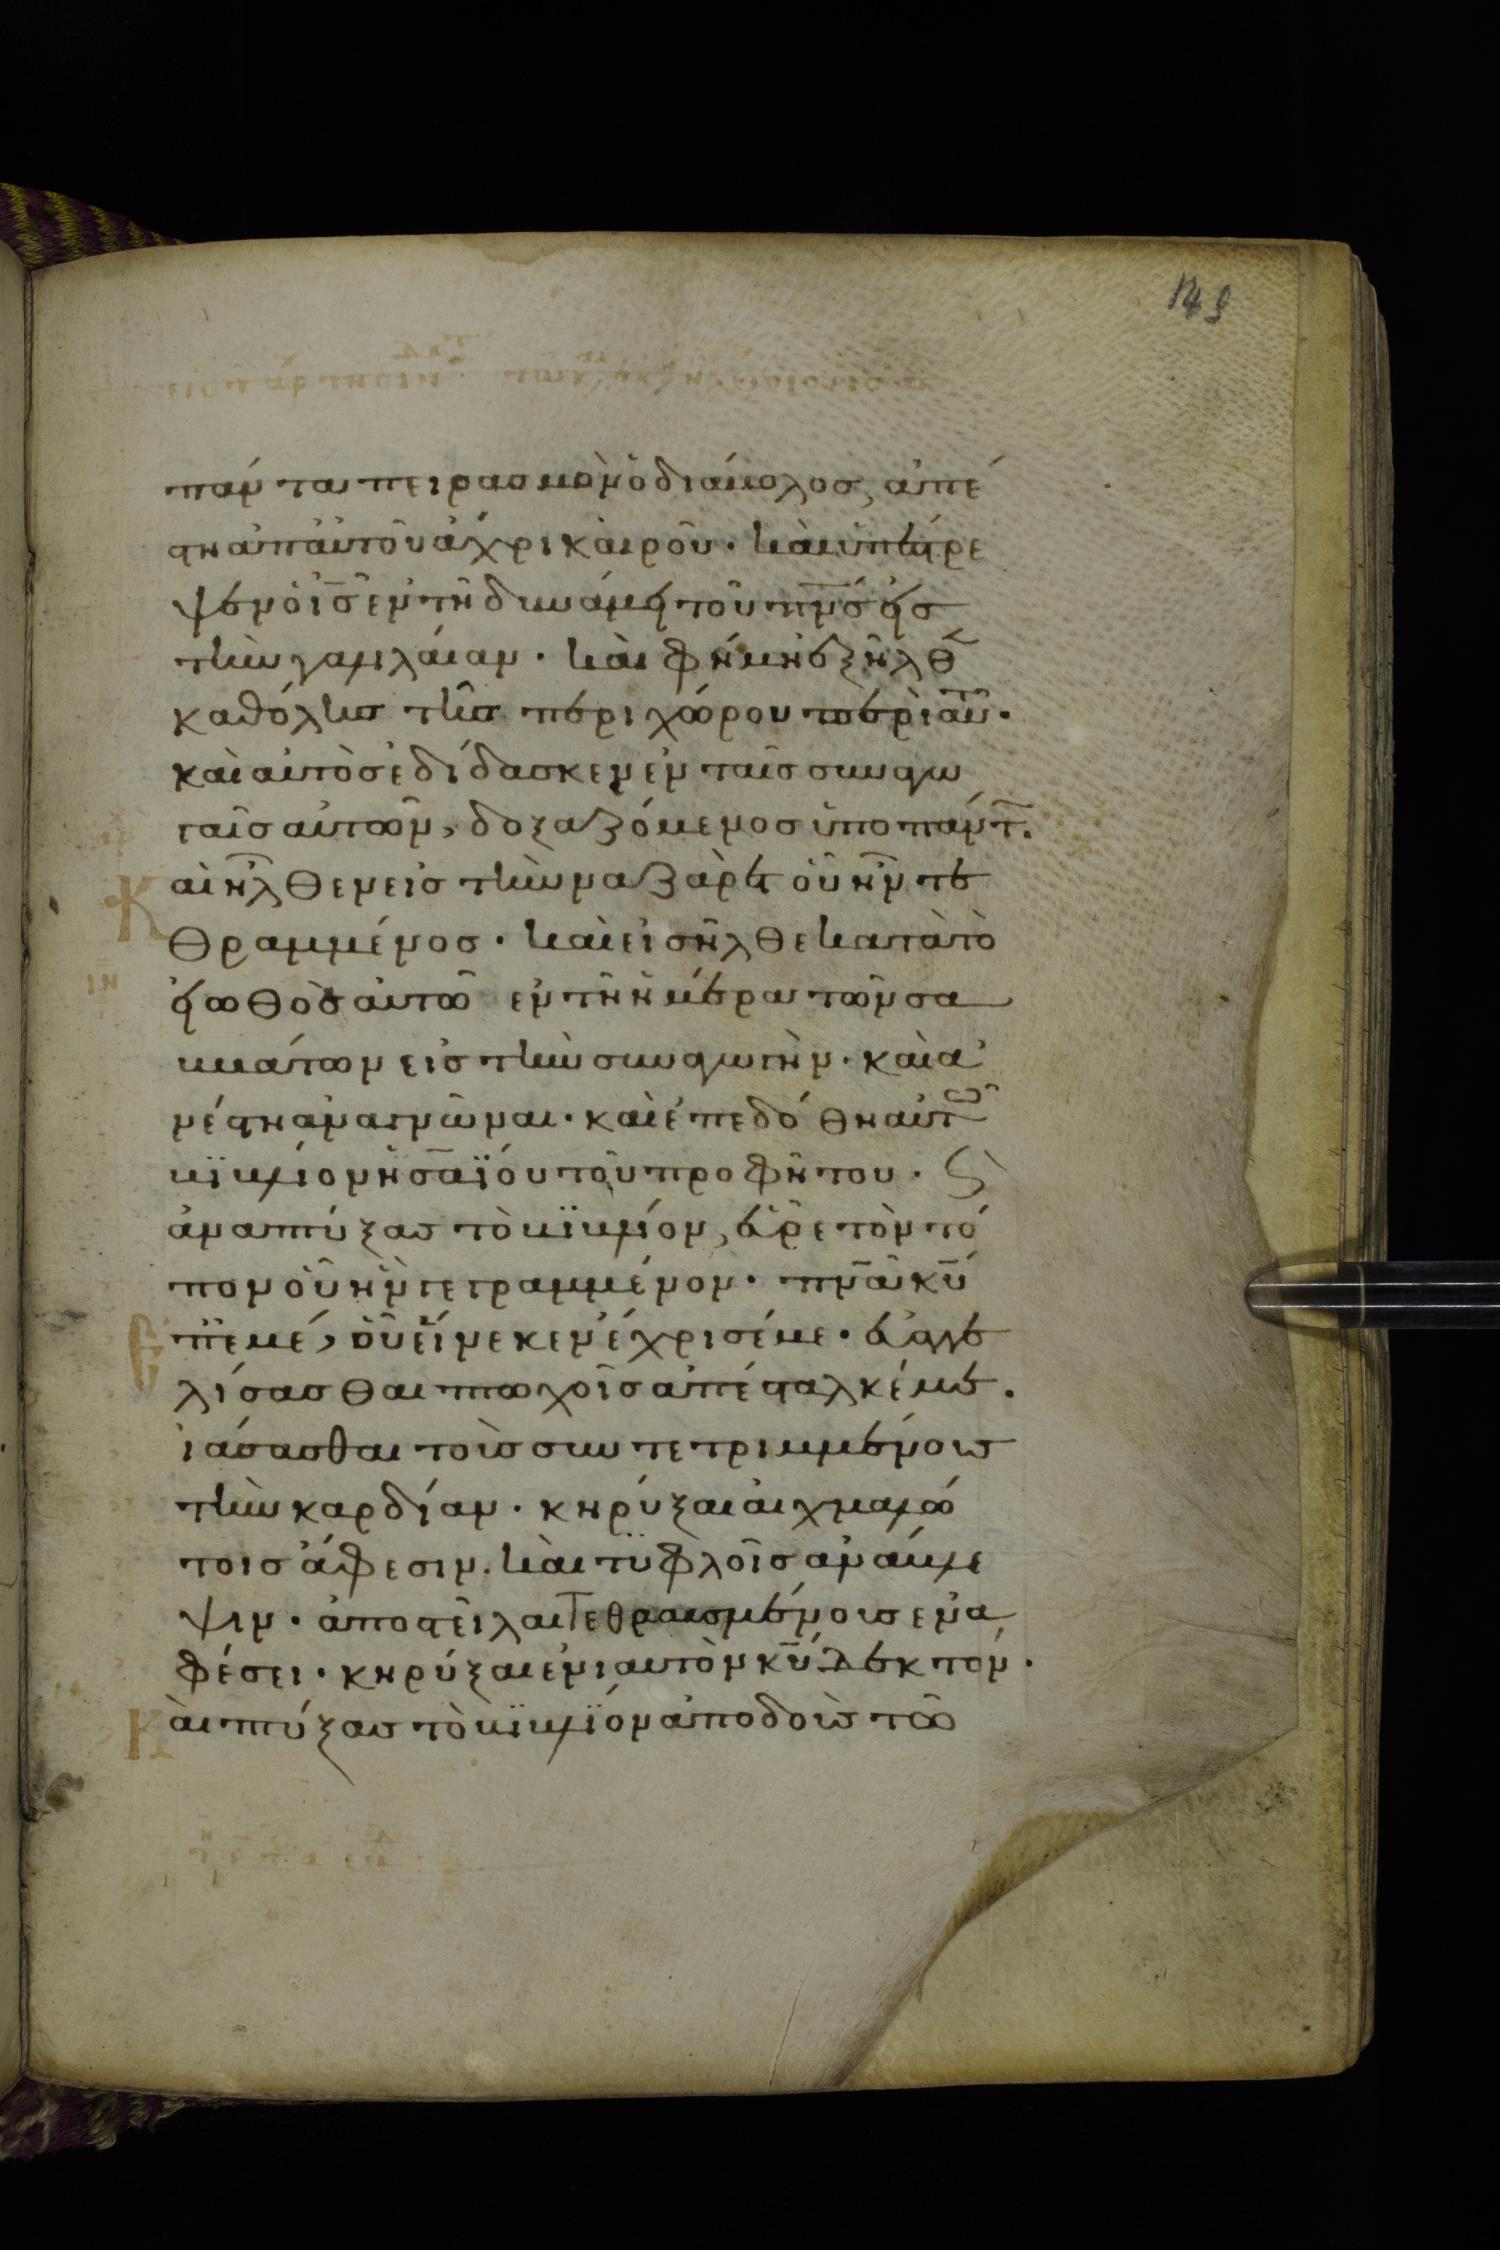 149
πάντα πειρασμὸν ὁ διάβολος, ἀπέ
στη ἀπ αὐτοῦ ἄχρι καιροῦ· καὶ ὑπέστρε
ψεν ὁ ις ἐν τῆ δυνάμει τοῦ πνς εἰς
τὴν γαλιλαίαν· καὶ φήμη ἐξῆλθε
καθόλης τῆς περιχώρου περὶ αὐτοῦ·
καὶ αὐτὸς ἐδίδασκεν ἐν ταῖς συναγω
γαῖς αὐτῶν, δοζαζόμενος ὑπο πάντ.
Καὶ ἦλθεν εἰς τὴν ναζαρὲτ οὗ ἦν τε
θραμμένος· καὶ εἰσῆλθε κατὰ τὸ
εἰωθὸς αὐτῶ ἐν τῆ ἡμέρα τῶν σα
ββάτων εἰς τὴν συναγωγὴν· καὶ ἀ
νέστη ἀναγνῶναι· καὶ ἐπεδόθη αὐτῶ
βϊβλίον ἡσαϊου τοῦ προφήτου· ϛ
ἀναπτύξας τὸ βϊβλίον, εὗρε τὸν τό
πον οὗ ἦν γεγραμμένον· πνα κυ
ἐπ ἐμέ, οὗ εἵνεκεν ἔχρισέ με· εὐαγγε
λίσασθαι πτωχοῖς ἀπέσταλκέ με·
ἰάσασθαι τοὺς συντετριμμένους
τὴν καρδίαν· κηρύξαι αἰχμαλώ
τοις ἄφεσιν· καὶ τϋφλοῖς ἀνάβλε
ψιν· ἀποστεῖλαι τεθραυσμένους ἐν ἀ
φέσει· κηρύξαι ἐνιαυτὸν κυ δεκτόν·
Καὶ πτύξας τὸ βϊβλϊον ἀποδοὺς τῶ